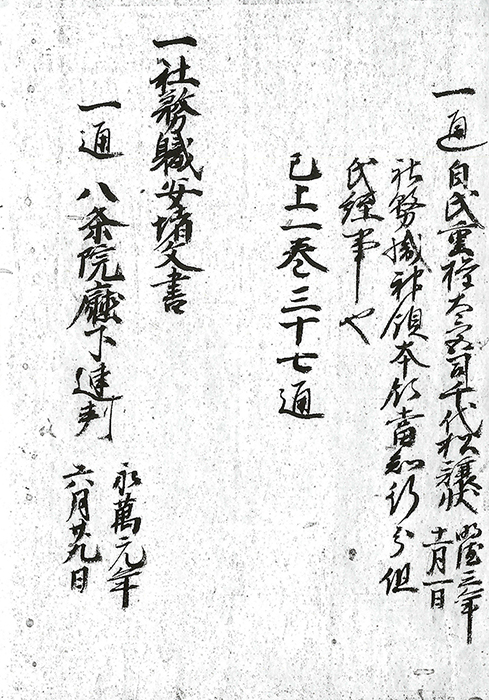 一通 自氏重大宮司千代松譲状 三年
十一月一日
社務職神領本領當知行分但
氏經事也
已上一巻三十七通
一社務職安堵文書
一通 八条院廳下連判 永萬元年
六月廿九日